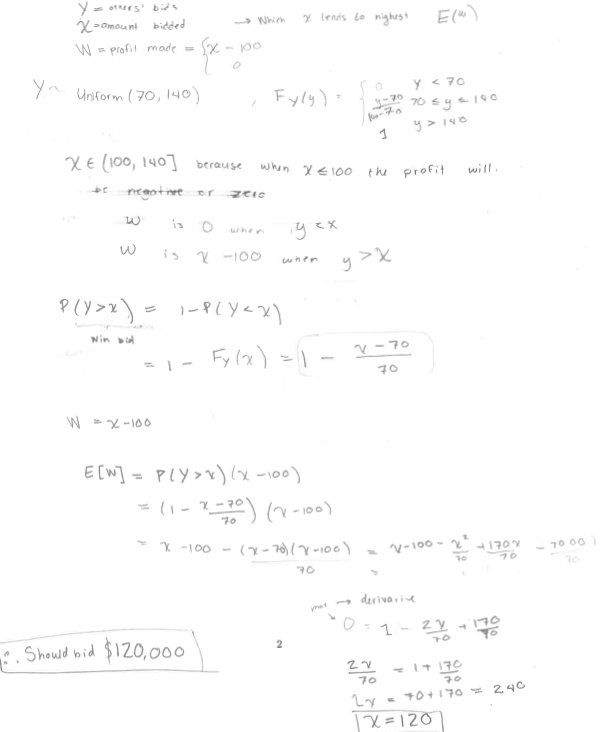 Y = others' bids
X = amount bidded → When x leads to highest E(w)
W = profit made = { x - 100
0
Y ~ Uniform (70, 140) , F_Y(y) = { 0 y < 70
y-70 / 140-70 70 ≤ y ≤ 140
1 y > 140
X ∈ (100, 140] because when X ≤ 100 the profit will.
be negative or zero
W is 0 when y < x
W is x - 100 when y > x
P(Y > x) = 1 - P(Y < x)
Win bid
= 1 - F_Y(x) = 1 - x - 70 / 70
W = x - 100
E[W] = P(Y > x)(x - 100)
= (1 - x - 70 / 70)(x - 100)
= x - 100 - (x - 70)(x - 100) / 70 = x - 100 - x² / 70 + 170x / 70 - 7000 / 70
max → derivative
0 = 1 - 2x / 70 + 170 / 70
2x / 70 = 1 + 170 / 70
2x = 70 + 170 = 240
x = 120
∴ Should bid $120,000
2